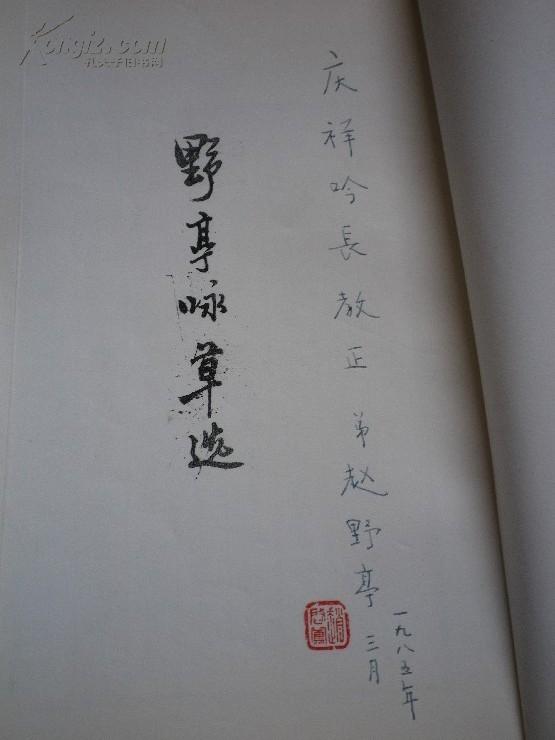 Kongfz.com
孔夫子旧书网
庆祥吟長教正 弟赵野亭
一九八五年
三月
野亭咏草选